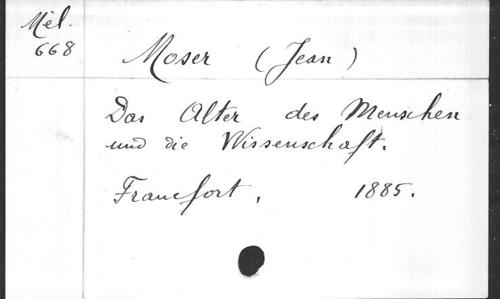 Mél.
668
Moser (Jean)
Das Alter des Menschen
und die Wissenschaft.
Francfort, 1885.